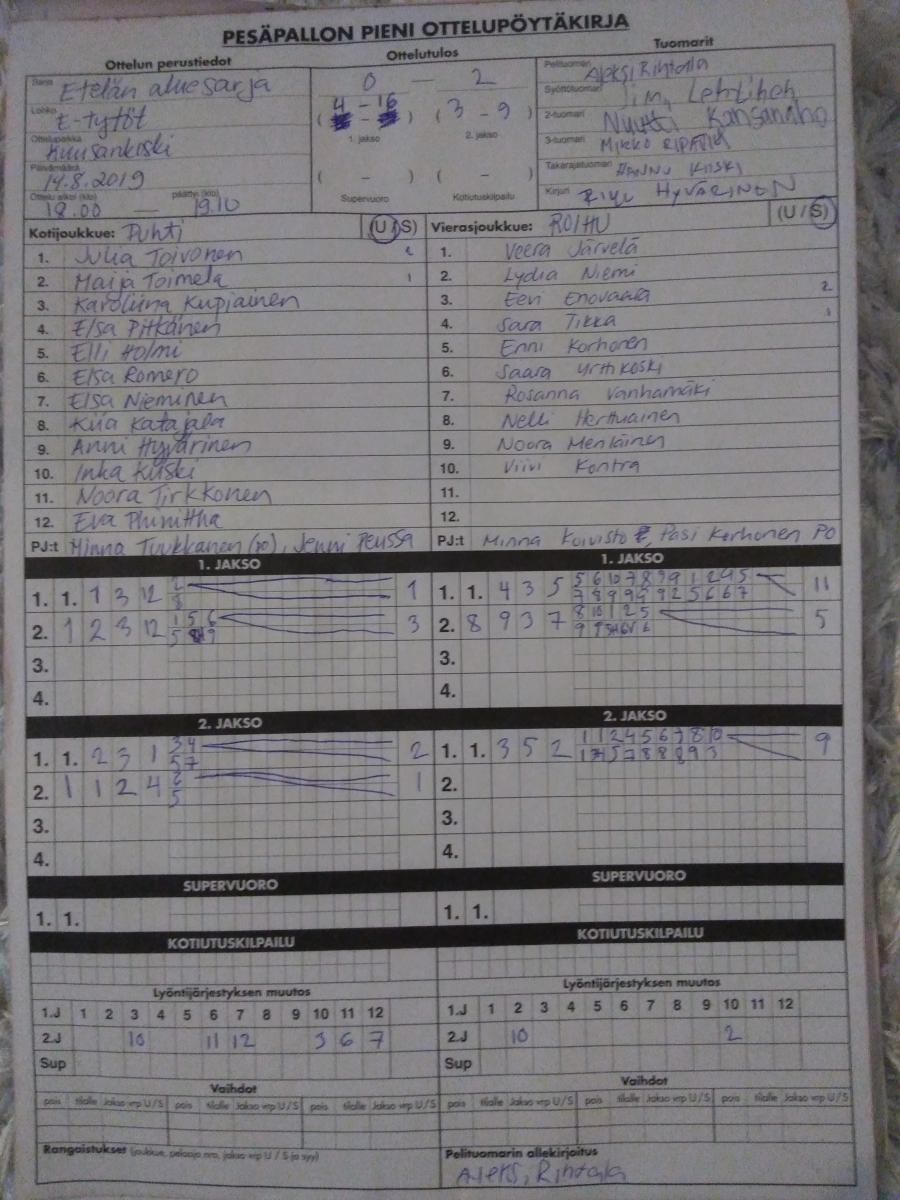 PESÄPALLON PIENI OTTELUPÖYTÄKIRJA
Ottelun perustiedot
Ottelutulos
Tuomarit
Sarja
Etelän aluesarja
Lohko
E-tytöt
Ottelupaikka
Päivämäärä
14.8.2019
Ottelu alkoi (klo) päättyi (klo)
18.00 — 19.10
0 — 2
4 - 16
( - ) (3 - 9)
1. jakso 2. jakso
( - ) ( - )
Supervuoro Kotiutuskilpailu
Pelituomari
Aleksi Rihtala
Syöttötuomari
2-tuomari
Kansanaho
3-tuomari
Mikko
Takarajatuomari
Hannu Kiiski
Kirjuri
Kotijoukkue: Puhti (U/S)
1. Julia Toivonen 2
2. Maija Toimela 1
3. Karoliina Kupiainen
4. Elsa Pitkänen
5. Elli Holmi
6. Elsa Romero
7. Elsa Nieminen
8. Kiia Katajala
9. Anni Hyvärinen
10. Inka Kiiski
11. Noora Tirkkonen
12. Eva
PJ:t Minna Tuukkanen (PO), Jenni Peussa
Vierasjoukkue: ROIHU (U/S)
1. Veera Järvelä
2. Lydia Niemi
3. Eevi Enovaara 2
4. Sara Tikka 1
5. Enni Korhonen
6. Saara
7. Rosanna Vanhamäki
8. Nelli Herttuainen
9. Noora
10. Viivi Kontra
11.
12.
PJ:t Minna Koivisto, Pasi Korhonen PO
1. JAKSO
1. 1. 1 3 12 2 1
8
2. 1 2 3 12 1 5 6 3
3.
4.
1. JAKSO
1. 1. 4 3 5 5 6 10 7 8 11
2. 8 9 3 7 8 10 1 2 5 5
3.
4.
2. JAKSO
1. 1. 2 3 1 3 4 2
5 7
2. 1 1 2 4 1
5
3.
4.
2. JAKSO
1. 1. 3 5 2 1 1 2 4 5 6 7 8 10 9
2.
3.
4.
SUPERVUORO
1. 1.
SUPERVUORO
1. 1.
KOTIUTUSKILPAILU
KOTIUTUSKILPAILU
Lyöntijärjestyksen muutos
1.J 1 2 3 4 5 6 7 8 9 10 11 12
2.J 10 11 12 3 6 7
Sup
Lyöntijärjestyksen muutos
1.J 1 2 3 4 5 6 7 8 9 10 11 12
2.J 10 2
Sup
Vaihdot
pois tilalle Jakso vrp U/S pois tilalle Jakso vrp U/S pois tilalle Jakso vrp U/S
Vaihdot
pois tilalle Jakso vrp U/S pois tilalle Jakso vrp U/S pois tilalle Jakso vrp U/S
Rangaistukset (joukkue, pelaaja nro, jakso vrp U / S ja syy)
Pelituomarin allekirjoitus
Aleksi Rihtala